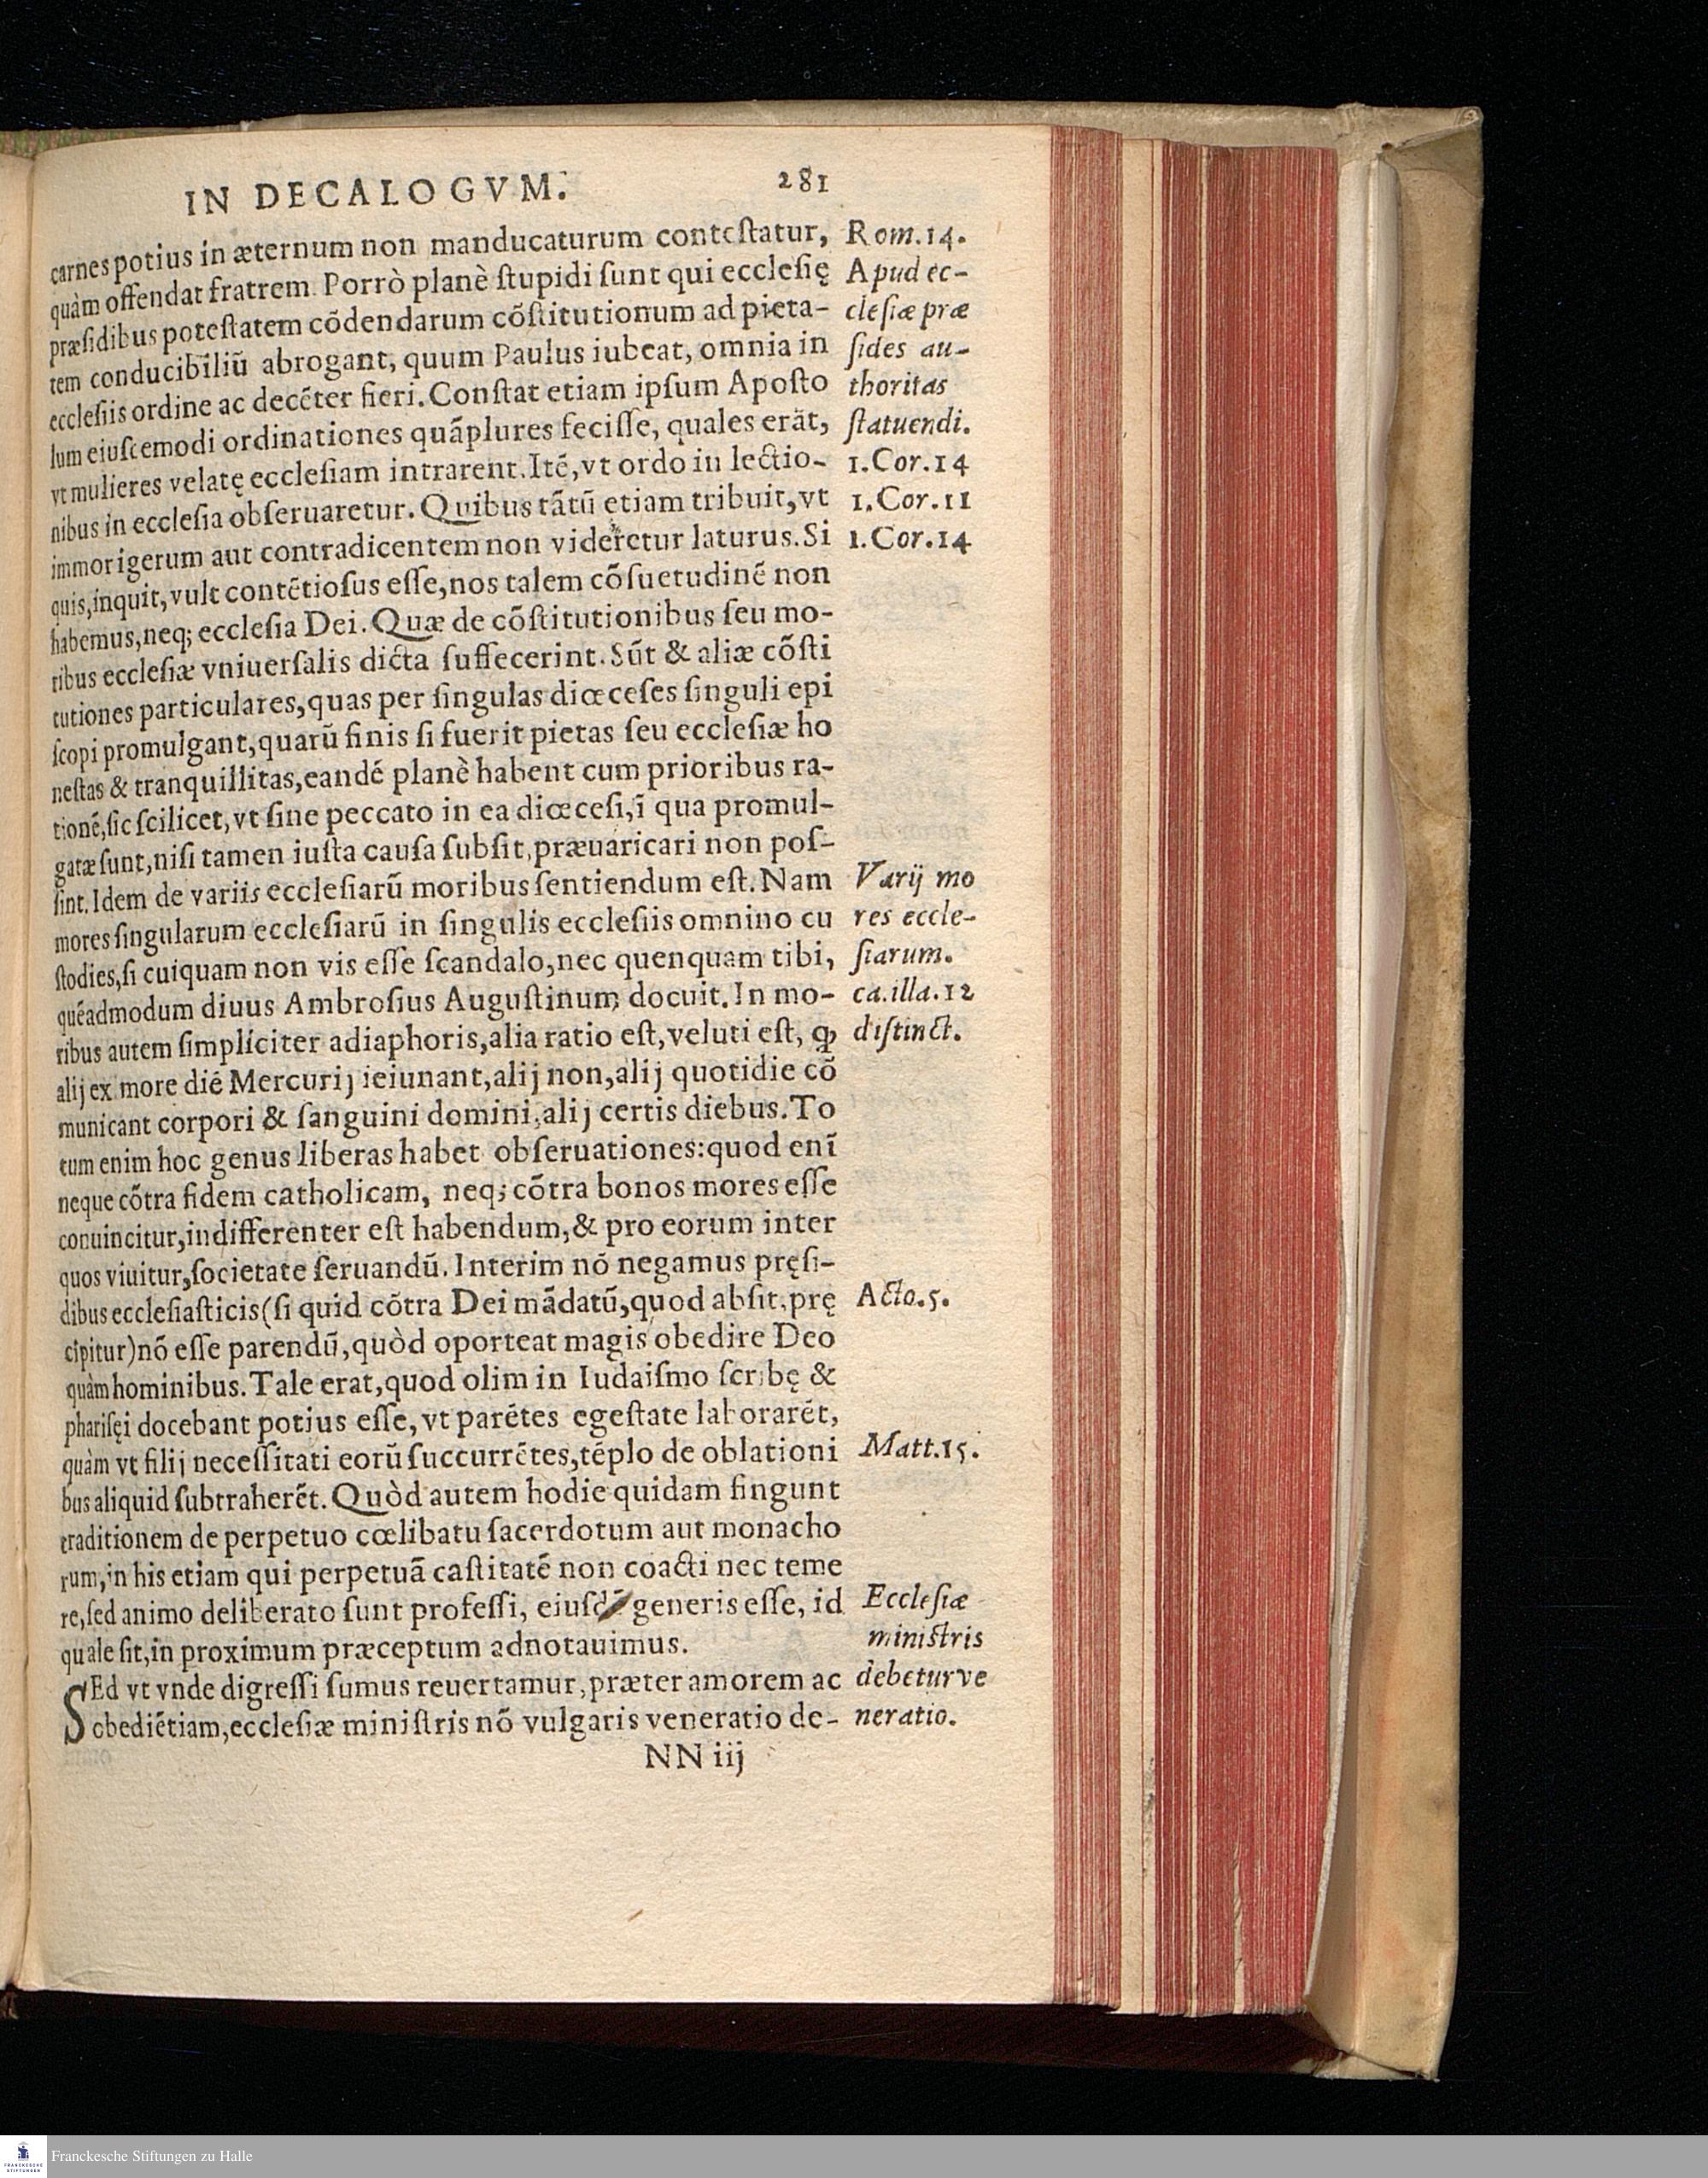 IN DECALOGVM. 281
carnes potius in æternum non manducaturum contestatur,
quàm offendat fratrem. Porrò planè stupidi sunt qui ecclesię
præsidibus potestatem cõdendarum cõstitutionum ad pieta-
tem conducibiliũ abrogant, quum Paulus iubeat, omnia in
ecclesiis ordine ac decẽter fieri. Constat etiam ipsum Aposto
lum eiuscemodi ordinationes quãplures fecisse, quales erãt,
vt mulieres velatę ecclesiam intrarent. Itẽ, vt ordo in lectio-
nibus in ecclesia obseruaretur. Quibus tãtũ etiam tribuit, vt
immorigerum aut contradicentem non videretur laturus. Si
quis, inquit, vult contẽtiosus esse, nos talem cõsuetudinẽ non
habemus, neq; ecclesia Dei. Quæ de cõstitutionibus seu mo-
ribus ecclesiæ vniuersalis dicta suffecerint. Sũt & aliæ cõsti
tutiones particulares, quas per singulas diœceses singuli epi
scopi promulgant, quarũ finis si fuerit pietas seu ecclesiæ ho
nestas & tranquillitas, eandẽ planè habent cum prioribus ra-
tionẽ, sic scilicet, vt sine peccato in ea diœcesi, ĩ qua promul-
gatæ sunt, nisi tamen iusta causa subsit, præuaricari non pos-
sint. Idem de variis ecclesiarũ moribus sentiendum est. Nam
mores singularum ecclesiarũ in singulis ecclesiis omnino cu
stodies, si cuiquam non vis esse scandalo, nec quenquam tibi,
quẽadmodum diuus Ambrosius Augustinum docuit. In mo-
ribus autem simpliciter adiaphoris, alia ratio est, veluti est, ꝙ
alij ex more diẽ Mercurij ieiunant, alij non, alij quotidie cõ
municant corpori & sanguini domini, alij certis diebus. To
tum enim hoc genus liberas habet obseruationes: quod enĩ
neque cõtra fidem catholicam, neq; cõtra bonos mores esse
conuincitur, indifferenter est habendum, & pro eorum inter
quos viuitur, societate seruandũ. Interim nõ negamus pręsi-
dibus ecclesiasticis (si quid cõtra Dei mãdatũ, quod absit, prę
cipitur) nõ esse parendũ, quòd oporteat magis obedire Deo
quàm hominibus. Tale erat, quod olim in Iudaismo scribę &
pharisęi docebant potius esse, vt parẽtes egestate laborarẽt,
quàm vt filij necessitati eorũ succurrẽtes, tẽplo de oblationi
bus aliquid subtraherẽt. Quòd autem hodie quidam fingunt
traditionem de perpetuo cœlibatu sacerdotum aut monacho
rum, in his etiam qui perpetuã castitatẽ non coacti nec teme
re, sed animo deliberato sunt professi, eiusdẽ generis esse, id
quale sit, in proximum præceptum adnotauimus.
SEd vt vnde digressi sumus reuertamur, præter amorem ac
obediẽtiam, ecclesiæ ministris nõ vulgaris veneratio de-
NN iij
Rom. 14.
Apud ec-
clesiæ præ
sides au-
thoritas
statuendi.
1. Cor. 14
1. Cor. 11
1. Cor. 14
Varij mo
res eccle-
siarum.
ca. illa. 12
distinct.
Acto. 5.
Matt. 15.
Ecclesiæ
ministris
debetur ve
neratio.
Franckesche Stiftungen zu Halle
FRANCKESCHE
STIFTUNGEN